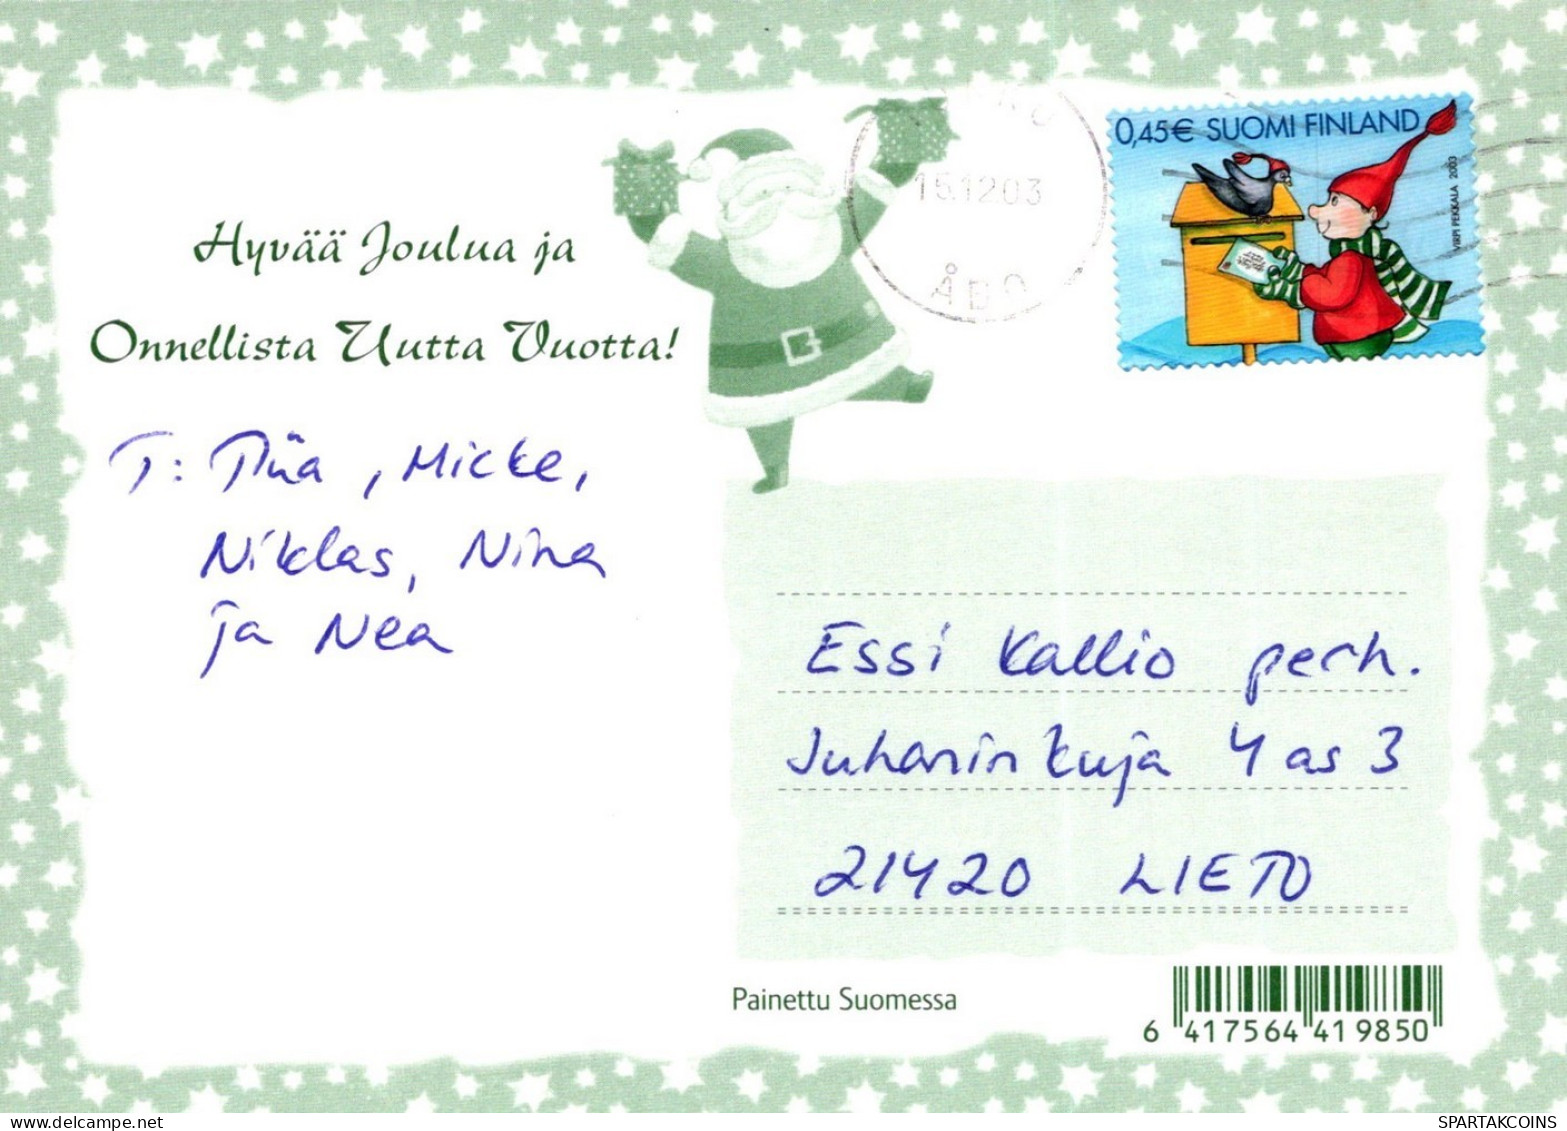 Hyvää Joulua ja
Onnellista Uutta Vuotta!
T: Tiia, Micke,
Niklas, Nina
ja Nea
15.12.03
ÅBO
0,45€ SUOMI FINLAND
VIRPI PEKKALA 2003
Essi Kallio perh.
Juhaninkuja 4 as 3
21420 LIETO
Painettu Suomessa
6 417564 419850
SPARTAKCOINS